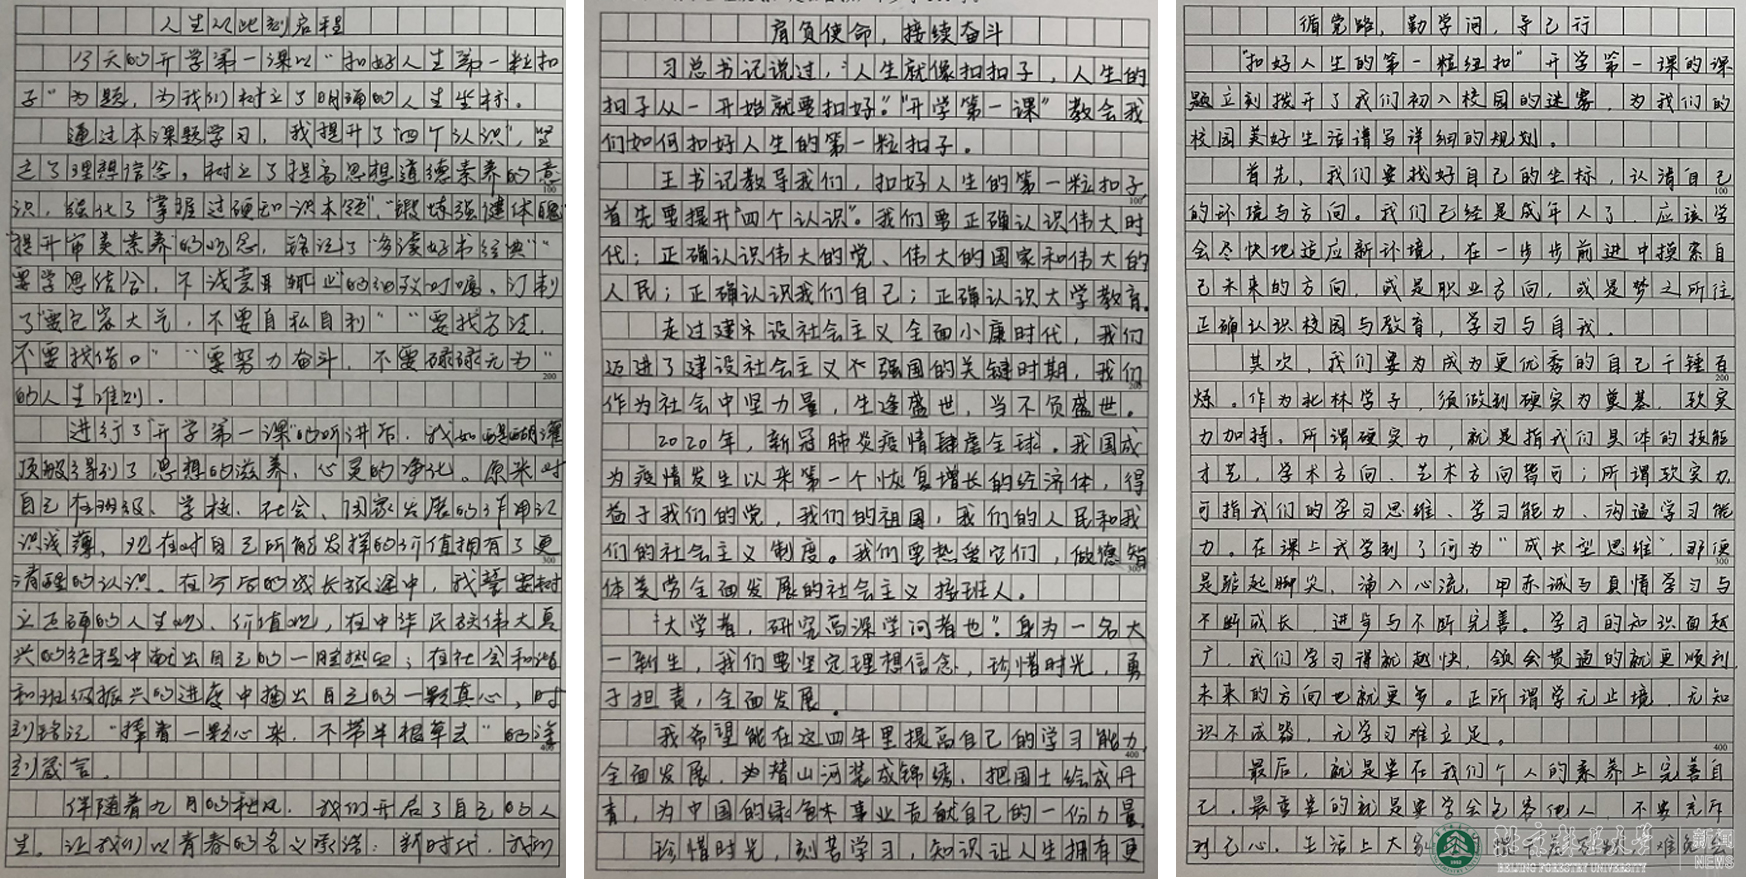 人生从此刻启程
今天的开学第一课以“扣好人生第一粒扣
子”为题，为我们树立了明确的人生坐标。
通过本课题学习，我提升了“四个认识”，坚
定了理想信念，树立了提高思想道德素养的意
识，强化了“掌握过硬知识本领”、“锻炼强健体魄”
“提升审美素养”的观念，铭记了“多读好书经典”“
要学思结合，不浅尝辄止”的细致叮嘱，订制
了“要包容大气，不要自私自利”“要找方法，
不要找借口”“要努力奋斗，不要碌碌无为”
的人生准则。
进行了“开学第一课”的听讲后，我如醍醐灌
顶般得到了思想的滋养，心灵的净化。原来对
自己在班级、学校、社会、国家发展的作用认
识浅薄，现在对自己所能发挥的价值拥有了更
清醒的认识。在今后的成长旅途中，我誓要树
立正确的人生观、价值观，在中华民族伟大复
兴的征程中献出自己的一腔热血；在社会和谐
和班级振兴的进度中掏出自己的一颗真心，时
刻铭记“捧着一颗心来，不带半根草去”的深
刻箴言。
伴随着九月的秋风，我们开启了自己的人
生，让我们以青春的名义承诺：新时代，我们
肩负使命，接续奋斗
习总书记说过，“人生就像扣扣子，人生的
扣子从一开始就要扣好。”“开学第一课”教会我
们如何扣好人生的第一粒扣子。
王书记教导我们，扣好人生的第一粒扣子，
首先要提升“四个认识”。我们要正确认识伟大时
代；正确认识伟大的党、伟大的国家和伟大的
人民；正确认识我们自己；正确认识大学教育。
走过建设社会主义全面小康时代，我们
迈进了建设社会主义强国的关键时期，我们
作为社会中坚力量，生逢盛世，当不负盛世。
2020年，新冠肺炎疫情肆虐全球。我国成
为疫情发生以来第一个恢复增长的经济体，得
益于我们的党，我们的祖国，我们的人民和我
们的社会主义制度。我们要热爱它们，做德智
体美劳全面发展的社会主义接班人。
“大学者，研究高深学问者也”。身为一名大
一新生，我们要坚定理想信念，珍惜时光，勇
于担责，全面发展。
我希望能在这四年里提高自己的学习能力，
全面发展，为替山河装成锦绣，把国土绘成丹
青，为中国的绿色事业贡献自己的一份力量。
珍惜时光，刻苦学习，知识让人生拥有更
循党路，勤学问，导己行
“扣好人生的第一粒纽扣”开学第一课的课
题立刻拨开了我们初入校园的迷雾，为我们的
校园美好生活谱写详细的规划。
首先，我们要找好自己的坐标，认清自己
的环境与方向。我们已经是成年人了，应该学
会尽快地适应新环境，在一步步前进中摸索自
己未来的方向，或是职业方向，或是梦之所往，
正确认识校园与教育，学习与自我。
其次，我们要为成为更优秀的自己千锤百
炼。作为北林学子，须做到硬实为奠基，软实
力加持。所谓硬实力，就是指我们具体的技能
才艺，学术方向、艺术方向皆可；所谓软实力，
可指我们的学习思维、学习能力、沟通学习能
力。在课上我学到了何为“成长型思维”，那便
是踮起脚尖，涌入心流，用赤诚与真情学习与
不断成长，进步与不断完善。学习的知识面越
广，我们学习得就越快，领会贯通的就更顺利，
未来的方向也就更多。正所谓学无止境，无知
识不成器，无学习难立足。
最后，就是要在我们个人的素养上完善自
己。最重要的就是要学会包容他人，不要充斥
北京林业大学
BEIJING FORESTRY UNIVERSITY
新闻
NEWS